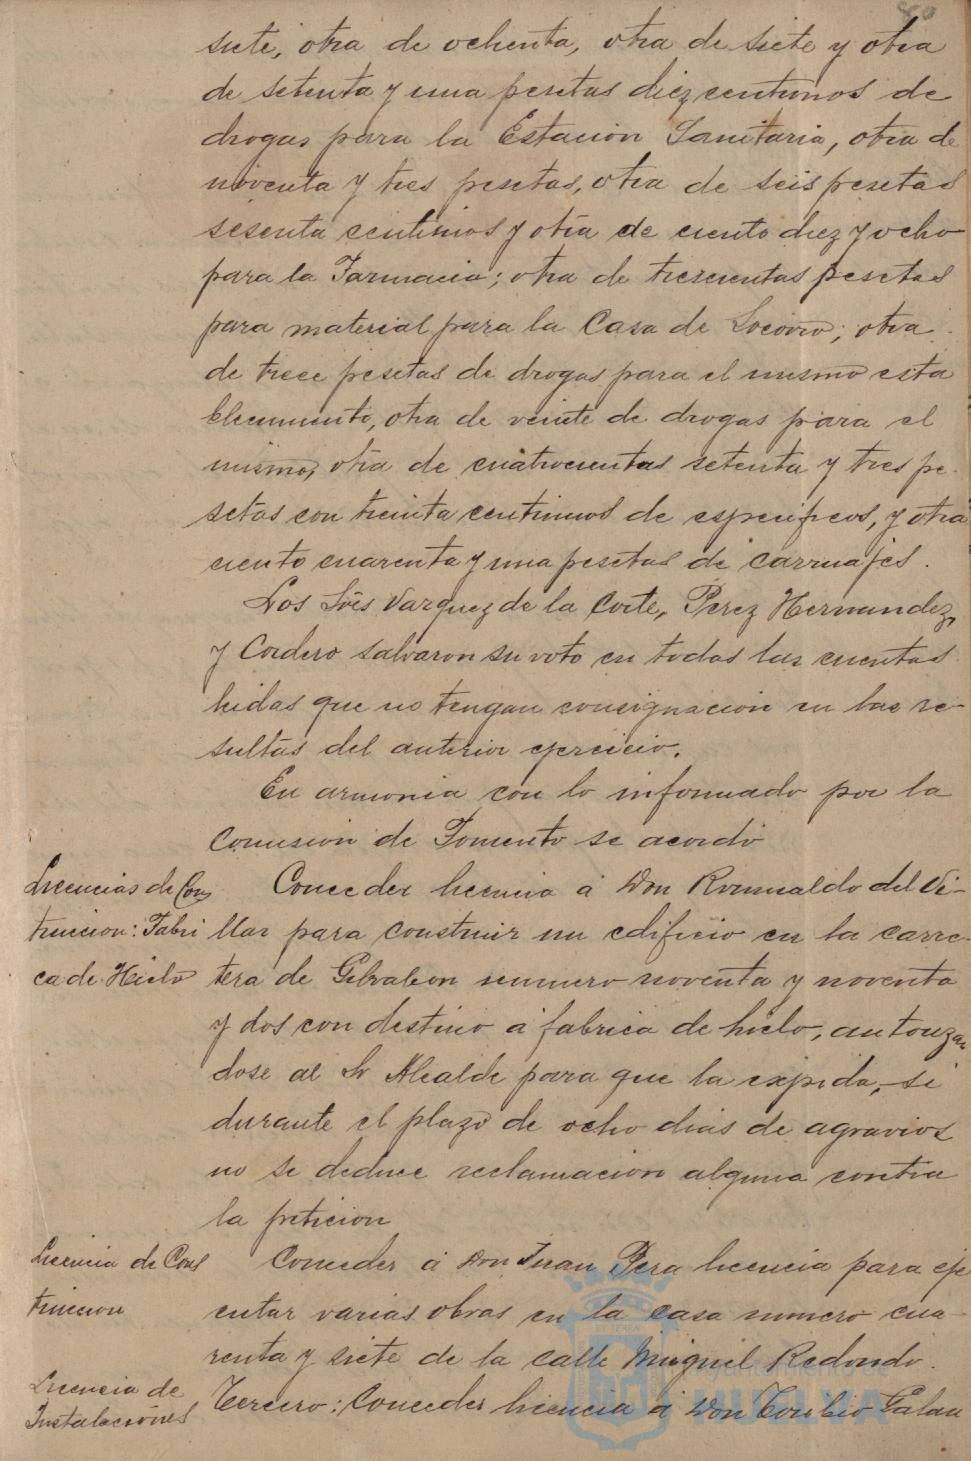 80
siete, otra de ochenta, otra de siete y otra
de setenta y una pesetas diez centimos de
drogas para la Estación Sanitaria, otra de
noventa y tres pesetas, otra de seis pesetas
sesenta centimos y otra de ciento diez y ocho
para la Farmacia; otra de trescientas pesetas
para material para la Casa de Socorro; otra
de trece pesetas de drogas para el mismo esta
blecimiento, otra de veinte de drogas para el
mismo, otra de cuatrocientas setenta y tres pe-
setas con treinta centimos de especificos, y otra
ciento cuarenta y una pesetas de carruajes.
Los Sres Vazquez de la Corte, Perez Hernandez,
y Cordero salvaron su voto en todas las cuentas
leidas que no tengan consignacion en las re-
sultas del anterior ejercicio.
En armonia con lo informado por la
Comision de Fomento se acordó
Licencias de Cons
truccion: Fabri
ca de Hielo
Conceder licencia á Don Romualdo del Vi-
llar para construir un edificio en la carre-
tera de Gibraleon numero noventa y noventa
y dos con destino á fabrica de hielo, autorizan
dose al Sr Alcalde para que la expida, si
durante el plazo de ocho dias de agravios
no se deduce reclamacion alguna contra
la peticion
Licencia de Cons
truccion
Conceder á Don Juan Pera licencia para eje
cutar varias obras en la casa numero cua-
renta y siete de la calle Miguel Redondo.
Licencia de
Instalaciones
Tercero: Conceder licencia á Don Toribio Galan
Ayuntamiento de
HUELVA